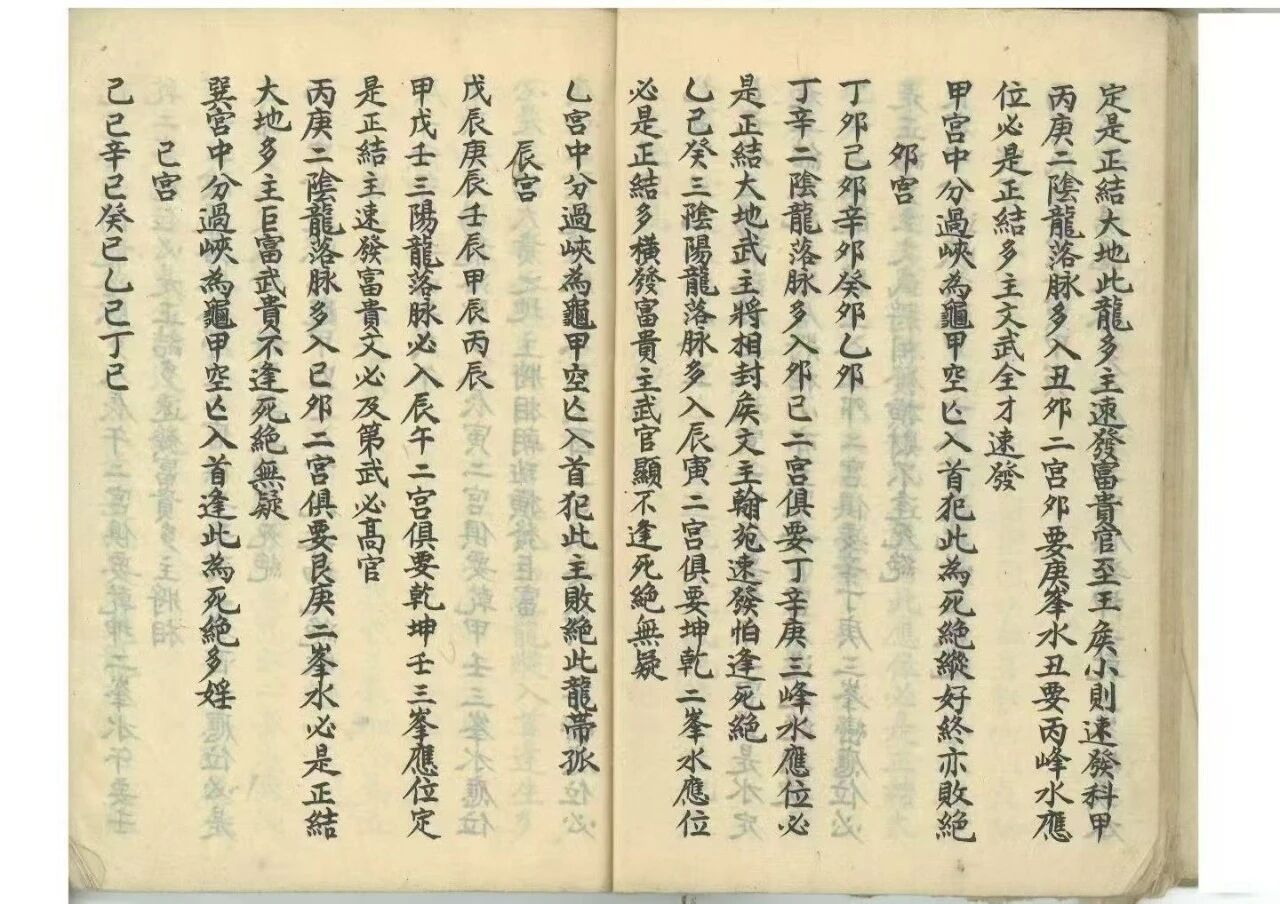 定是正結大地此龍多主速發富貴官至王矦小則速發科甲
丙庚二陰龍落脉多入丑夘二宮夘要庚峯水丑要丙峰水應
位必是正結多主文武全才速發
甲宮中分過峽為龜甲空亾入首犯此為死絕縱好終亦敗絕
夘宮
丁夘己夘辛夘癸夘乙夘
丁辛二陰龍落脉多入夘巳二宮俱要丁辛庚三峰水應位必
是正結大地武主將相封矦文主翰苑速發怕逢死絕
乙己癸三陰陽龍落脉多入辰寅二宮俱要坤乾二峯水應位
必是正結多橫發富貴主武官顯不逢死絕無疑
乙宮中分過峽為龜甲空亾入首犯此主敗絕此龍帶孤
辰宮
戊辰庚辰壬辰甲辰丙辰
甲戊壬三陽龍落脉必入辰午二宮俱要乾坤壬三峯應位定
是正結主速發富貴文必及第武必高官
丙庚二陰龍落脉多入巳夘二宮俱要艮庚二峯水必是正結
大地多主巨富武貴不逢死絕無疑
巽宮中分過峽為龜甲空亾入首逢此為死絕多婬
巳宮
己巳辛巳癸巳乙巳丁巳